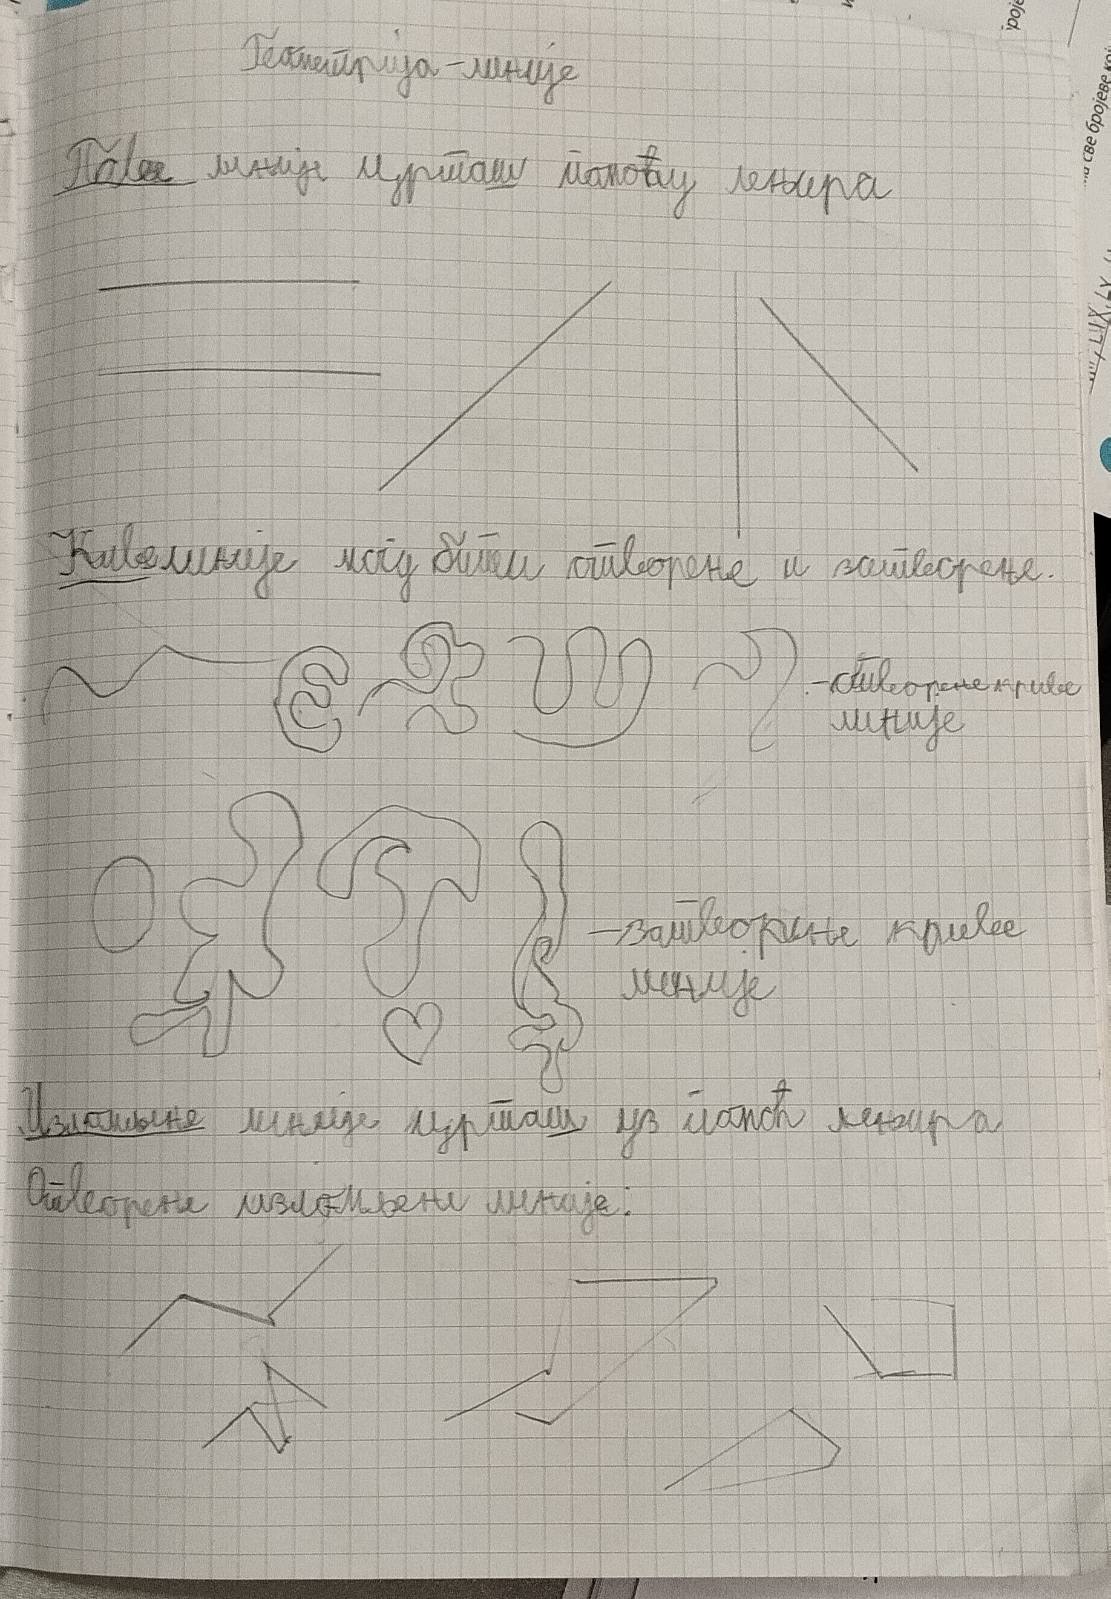 Геометрија - линије
Праве линије црташ помоћу лењира
Криве линије могу бити отворене и затворене.
- отворене криве
линије
- затворене криве
линије
Изломљене линије црташ уз помоћ лењира
Отворене изломљене линије:
на све бројеве кој